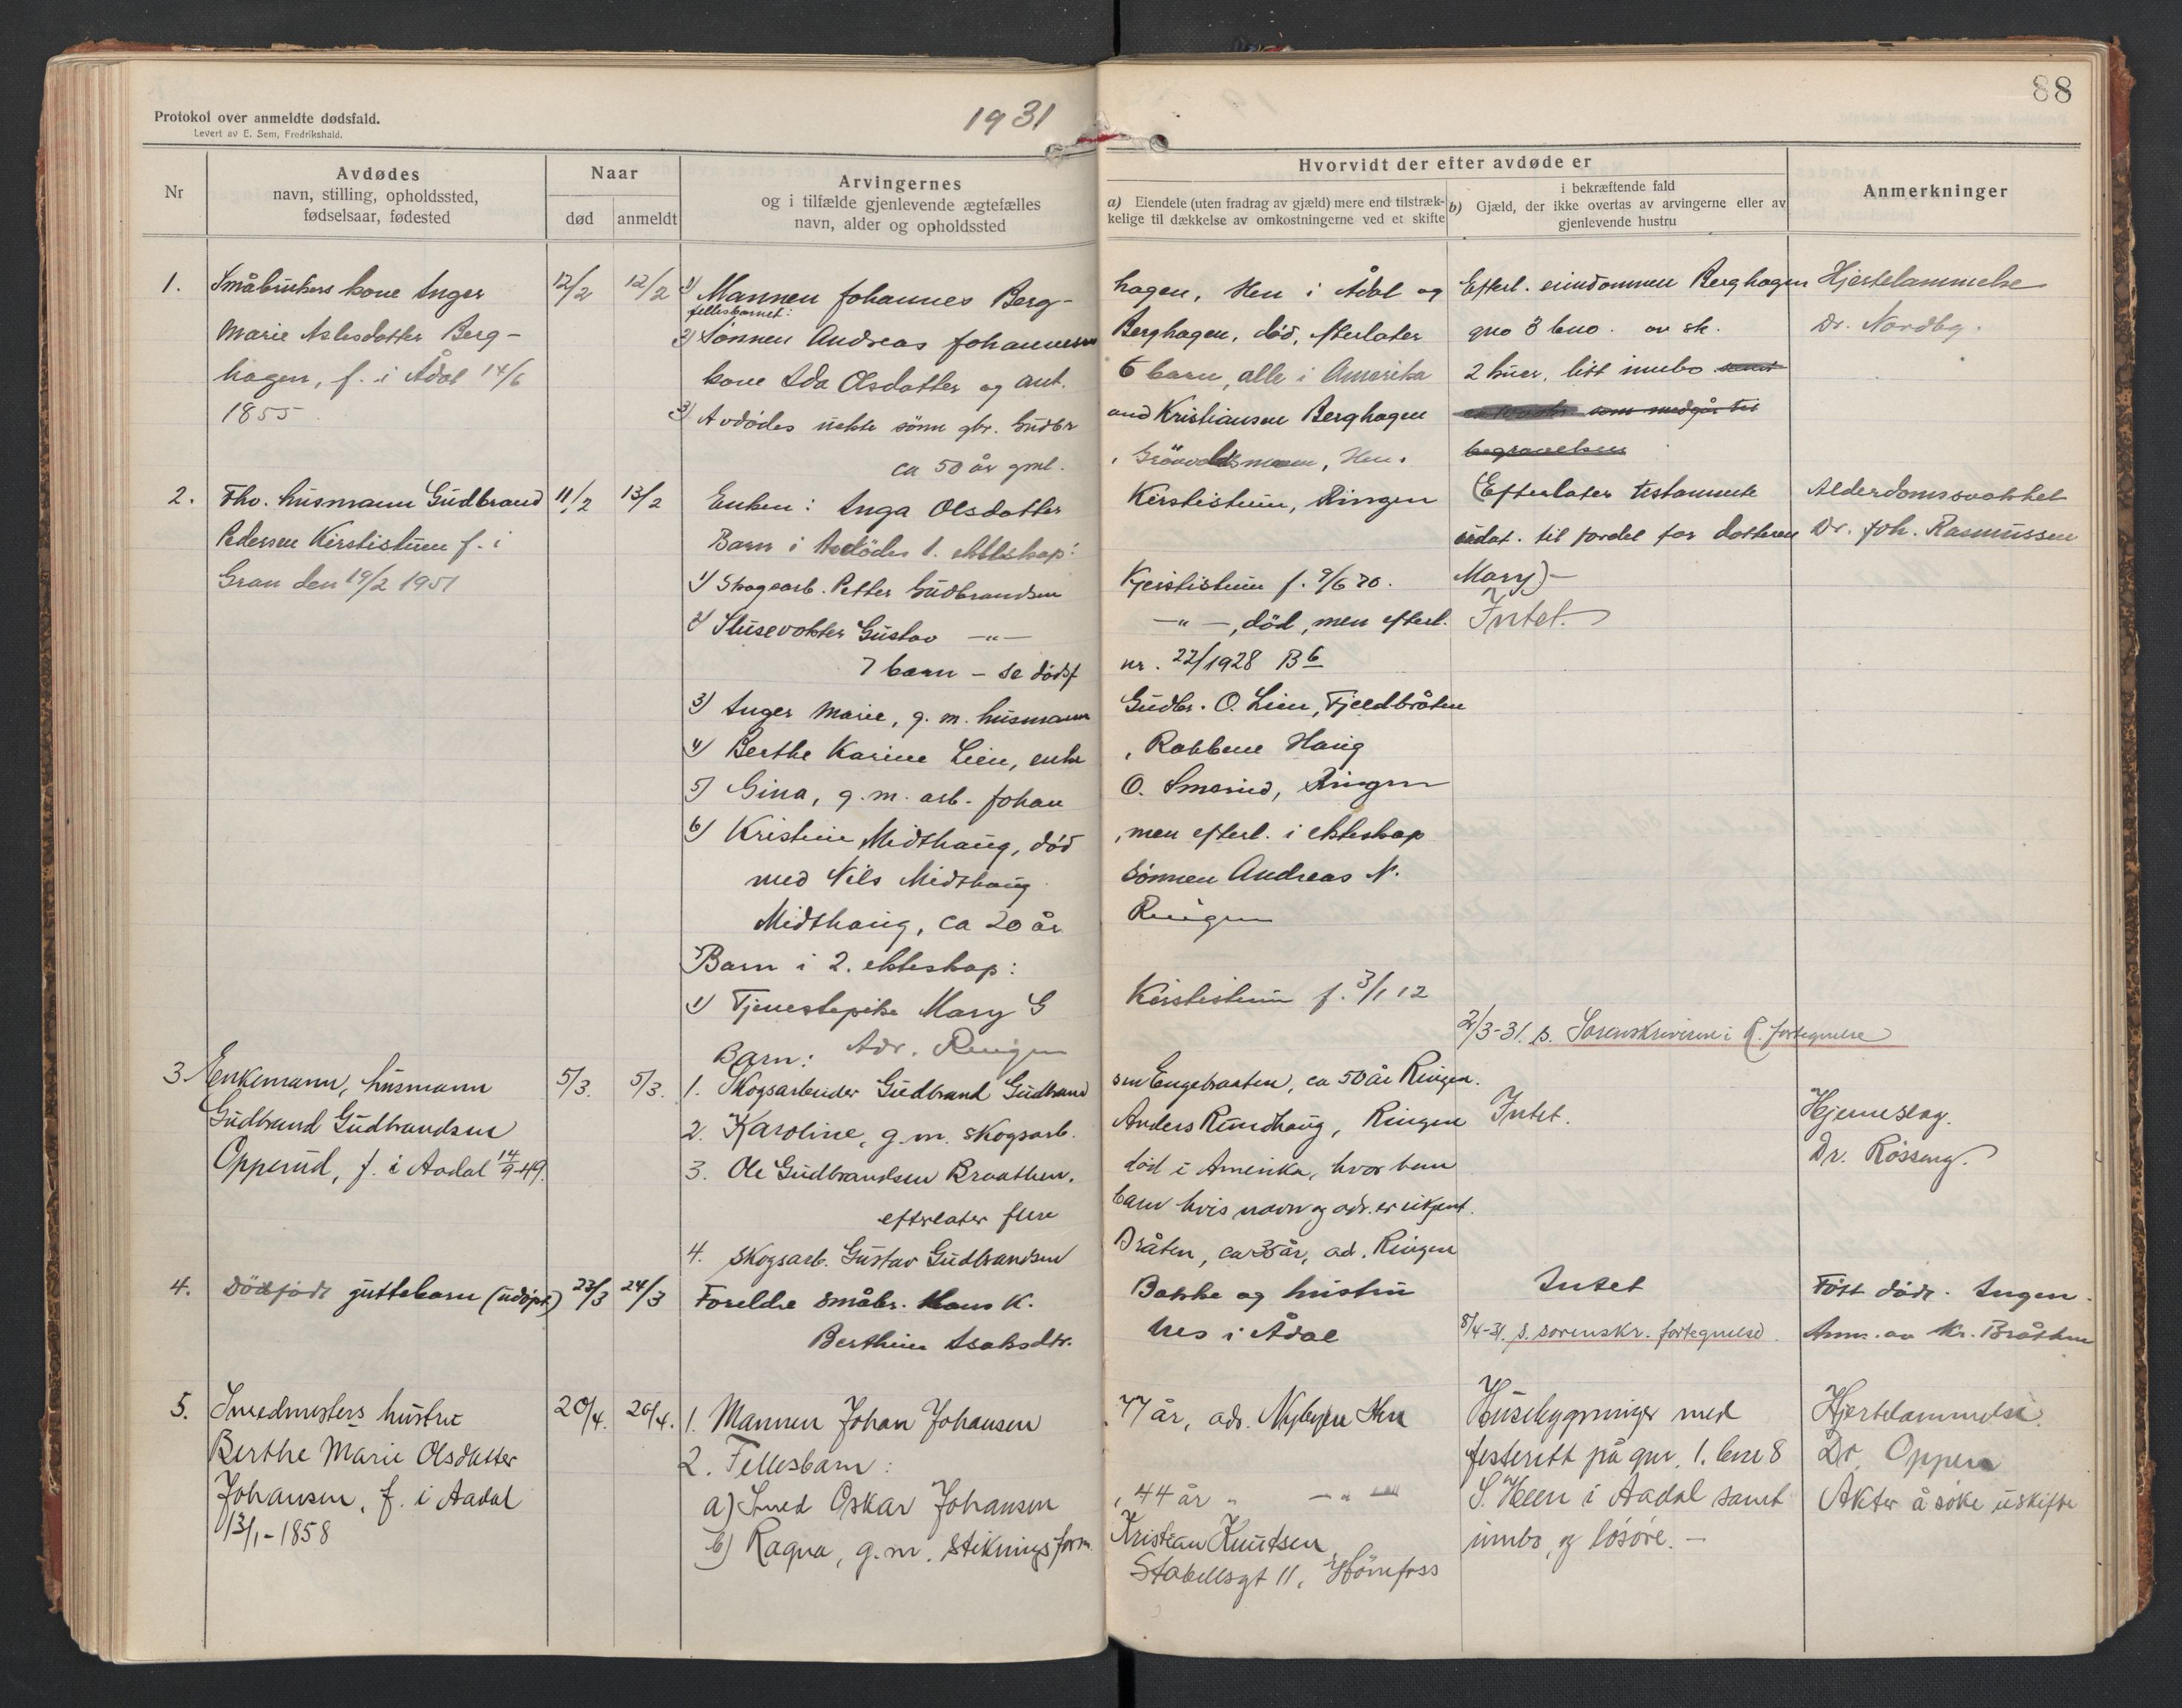 Protokol over anmeldte dødsfald.
Levert av E. Sem, Fredrikshald.
1931
88
Nr
Avdødes
navn, stilling, opholdssted,
fødselsaar, fødested
Naar
død
anmeldt
Arvingernes
og i tilfælde gjenlevende ægtefælles
navn, alder og opholdssted
Hvorvidt der efter avdøde er
a) Eiendele (uten fradrag av gjæld) mere end tilstræk-
kelige til dækkelse av omkostningerne ved et skifte
i bekræftende fald
b) Gjæld, der ikke overtas av arvingerne eller av
gjenlevende hustru
Anmerkninger
1. Småbrukers kone Inger 12/2 12/2 1) Mannen Johannes Berg- hagen, Hen i Ådal og Efterl. eiendommen Berghagen Hjertelammelse
fellesbarnet:
Marie Aslesdatter Berg- 2) Sønnen Andreas Johannesen Berghagen, død, efterlater gno 3 bno. av sk. Dr. Nordby.
hagen, f. i Ådal 14/6 kone Ida Olsdatter og ant. 6 barn, alle i Amerika 2 kuer, litt innbo samt
1855 3) Avdødes uekte sønn gbr. Gudbr and Kristiansen Berghagen som medgår til
ca 50 år gml. , Hen. begravelsen
2. Fhv. husmann Gudbrand 11/2 13/2 Enken: Inga Olsdatter Kerstistuen, Ringen (Efterlater testamente Alderdomssvakhet
Pedersen Kirstistuen f. i Barn i Avdødes 1. ekteskap: udat. til fordel for datteren Dr. Joh. Rasmussen
Gran den 19/2 1951 1) Skogsarb. Petter Gudbrandsen Kjerstistuen f. 9/6 70. Mary)-
2) Slusevokter Gustav -"- -"-, död, men efterl. Intet.
7 barn - se dødsf nr. 22/1928 B6
3) Inger Marie, g. m. husmann Gudbr. O. Lien, Fjeldbråten
4) Berthe Karine Lien, enke , Rabbene Haug
5) Gina, g. m. arb. Johan O. Smerud, Ringen
6) Kristine Midthaug, död , men efterl. i ekteskap
med Nils Midthaug Sönnen Andreas N.
Midthaug, ca 20 år Ringen
Barn i 2. ekteskap:
1) Tjenestepike Mary G Kirstistuen f. 3/1 12
Adr. Ringen 2/3-31. s. Sorenskriveren i R. fortegnelse
Barn:
3. Enkemann, husmann 5/3. 5/3. 1. Skogsarbeider Gudbrand Gudbrand sen Engebraaten, ca 50 år Ringen.
Gudbrand Gudbrandsen 2. Karoline, g. m. skogsarb. Anders Rundhaug, Ringen Intet. Hjerneslag.
Opperud, f. i Aadal 14/9-49. 3. Ole Gudbrandsen Braathen, död i Amerika, hvor han Dr. Rösseng.
efterlater flere barn hvis navn og adr. er ukjent.
4. Skogsarb. Gustav Gudbrandsen Bråten, ca 35 år, ad. Ringen
4. Dödfödt guttebarn (udöpt) 23/3 24/3 Foreldre småbr. Hans K. Bakke og hustru Intet Födt dödt. Ingen
Berthine Isaksdtr. Nes i Ådal 8/4-31. s. sorenskr. fortegnelse. Anm. av Kr. Bråthen
5. Smedmesters hustru 20/4. 20/4. 1. Mannen Johan Johansen 77 år, adr. Nybyen Hen Husebygninger med Hjertelammelse.
Berthe Marie Olsdatter 2. Fellesbarn: festerett på gnr. 1. bnr 8 Dr. Oppen
Johansen, f. i Aadal a) Smed Oskar Johansen , 44 år " -"- S. Heen i Aadal samt Akter å söke uskifte
13/1-1858 b) Ragna, g. m. stikningsform. Kristian Knutsen, innbo, og lösöre. -
Stabellsgt 11, Hönefoss